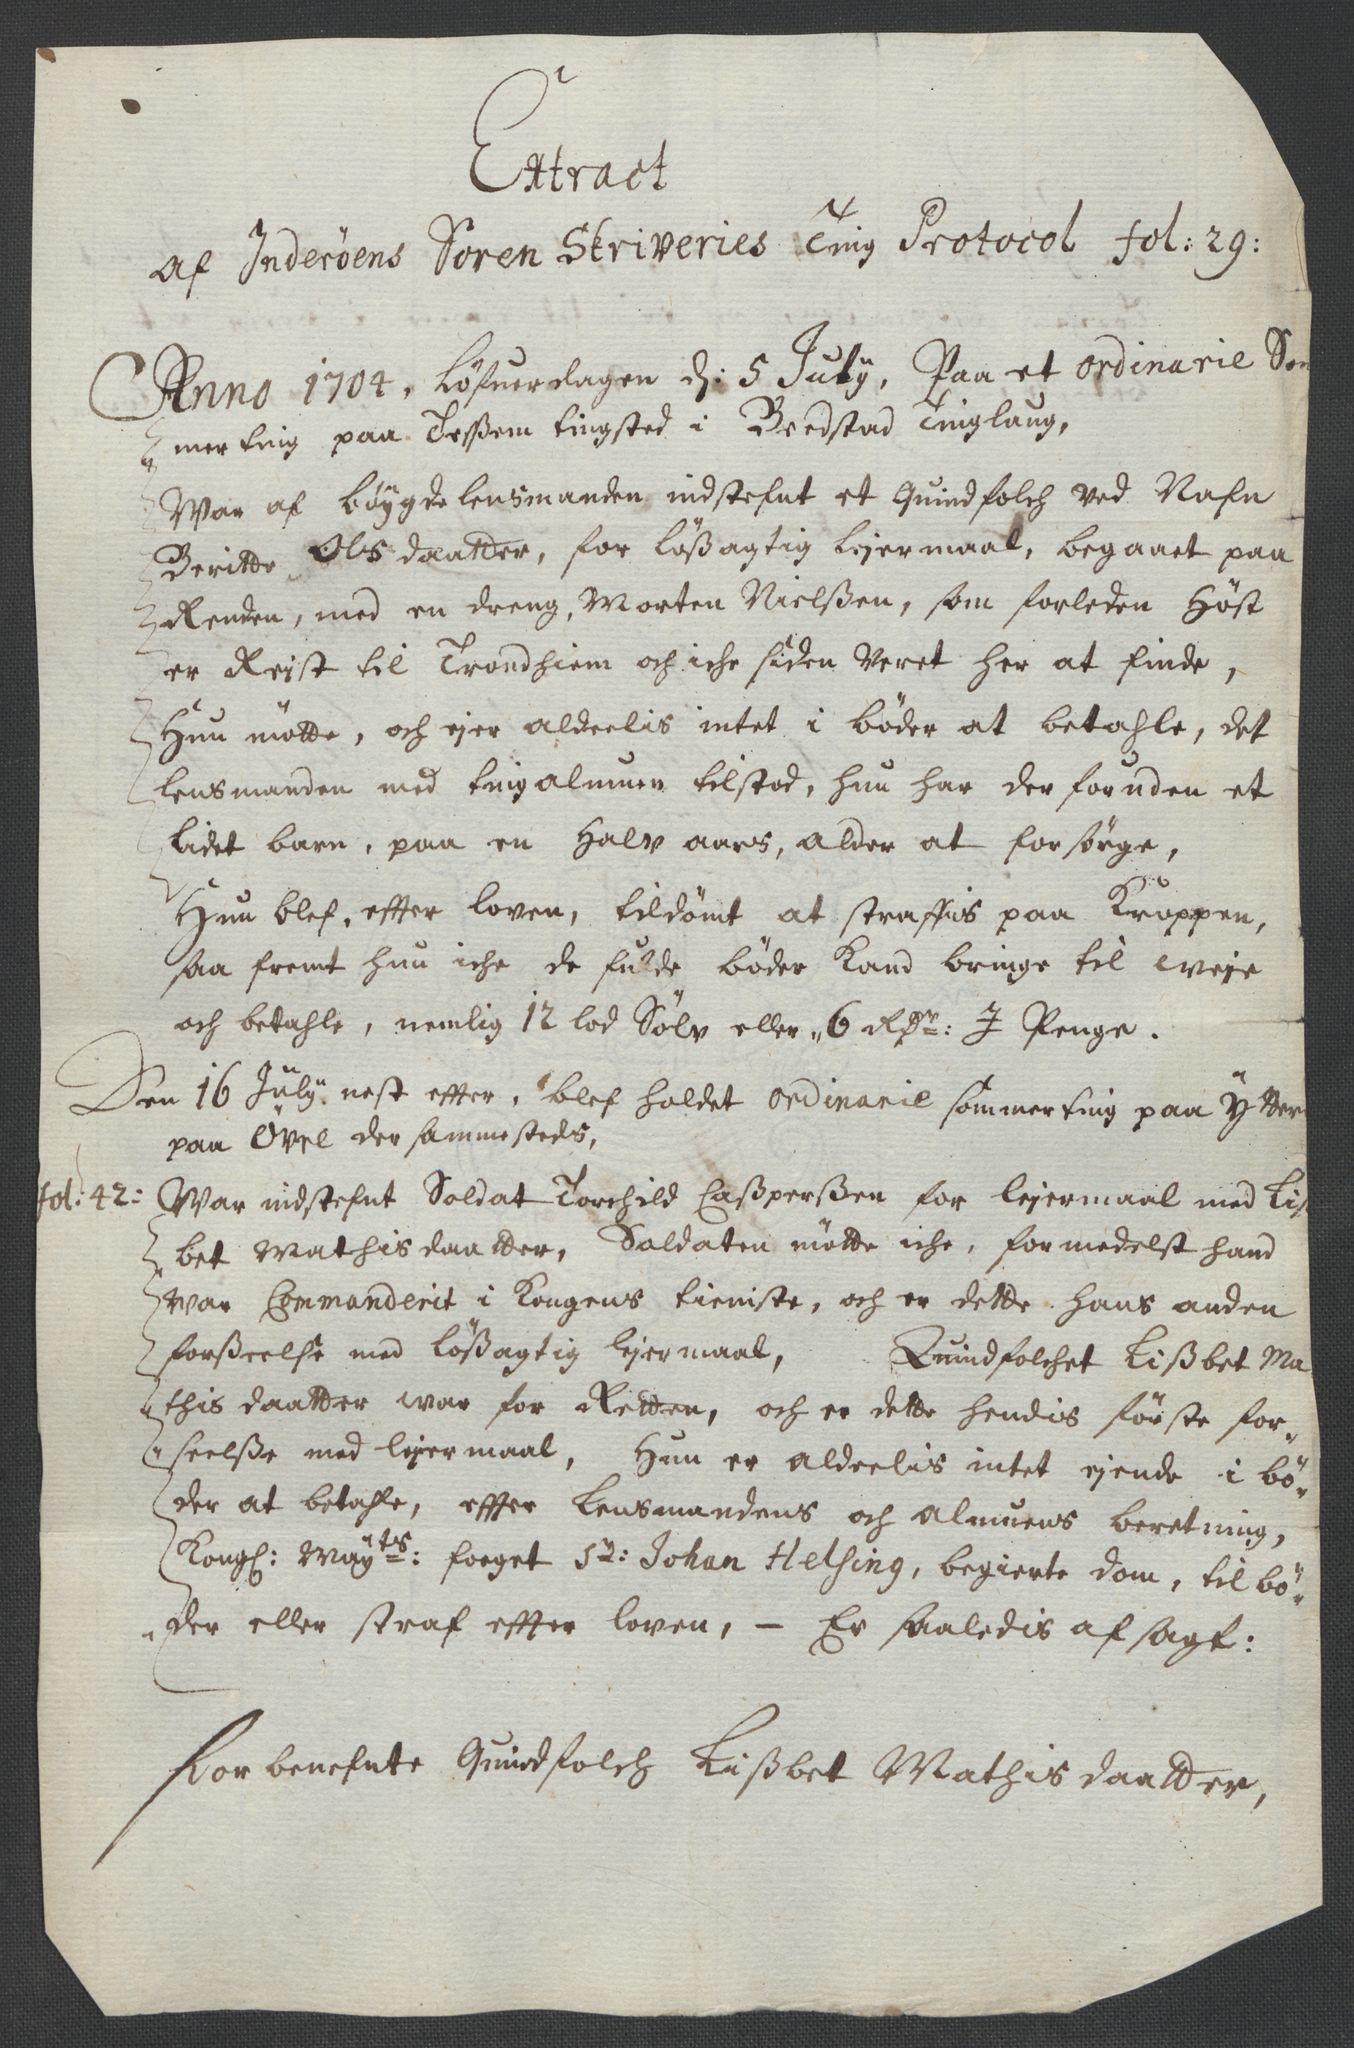 Extract
af Inderöens Soren Skriveries Ting Protocol fol: 29:
Anno 1704, Löfuerdagen d: 5 July, Paa et ordinarie Som
mer ting paa Tessem tingsted i Beedstad Tinglaug,
War af böygdelensmanden indstefnt et Quindfolch ved Nafn
Beritte Olsdaatter, for lößagtig leiermaal, begaaet paa
Renden, med en dreng, Morten Nielßen, som forleden Höst
er Reist til Trondhiem och iche siden veret her at finde,
Hun mötte, och eier aldeelis intet i böder at betahle, det
lensmanden med tingalmuen tilstod, hun har der foruden et
lidet barn, paa en Halv aars, alder at forsörge,
Hun blef, effter loven, tildömt at straffis paa Kroppen,
saa fremt hun iche de fulde böder Kand bringe til weie
och betahle, nemlig 12 lod Sölv eller 6 Rdr: Penge.
Den 16 July nest effter, blef holdet ordinarie sommerting paa Ytter
paa Övel der sammesteds,
fol: 42: War indstefnt Soldat Torchild Caßperßen for leiermaal med Liß
bet Mathisdaatter, Soldaten mötte iche, formedelst hand
war Commanderit i Kongens tieniste, och er dette hans anden
forßeelse med lößagtig leiermaal, Quindfolchet Lißbet Ma
thisdaatter war for Retten, och er dette hendis förste for„
seelße med leiermaal, Hun er aldeelis intet eiende i bö„
der at betahle, effter Lensmandens och almuens beretning,
Kongl: Mayts: foeget Sr: Johan Helsing, begierte dom, til bö„
der eller straf effter loven, – Er saaledis afsagt:
Forbenefnte Quindfolch Lißbet Mathisdaatter,